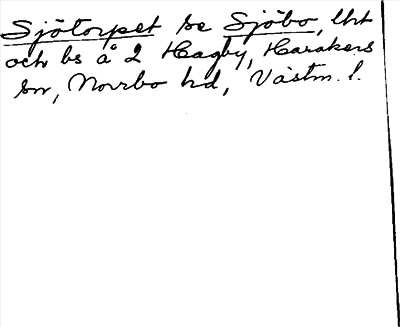 Sjötorpet se Sjöbo, lht
och bs å 2 Hagby, Harakers
sn, Norrbo hd, Västm. l.